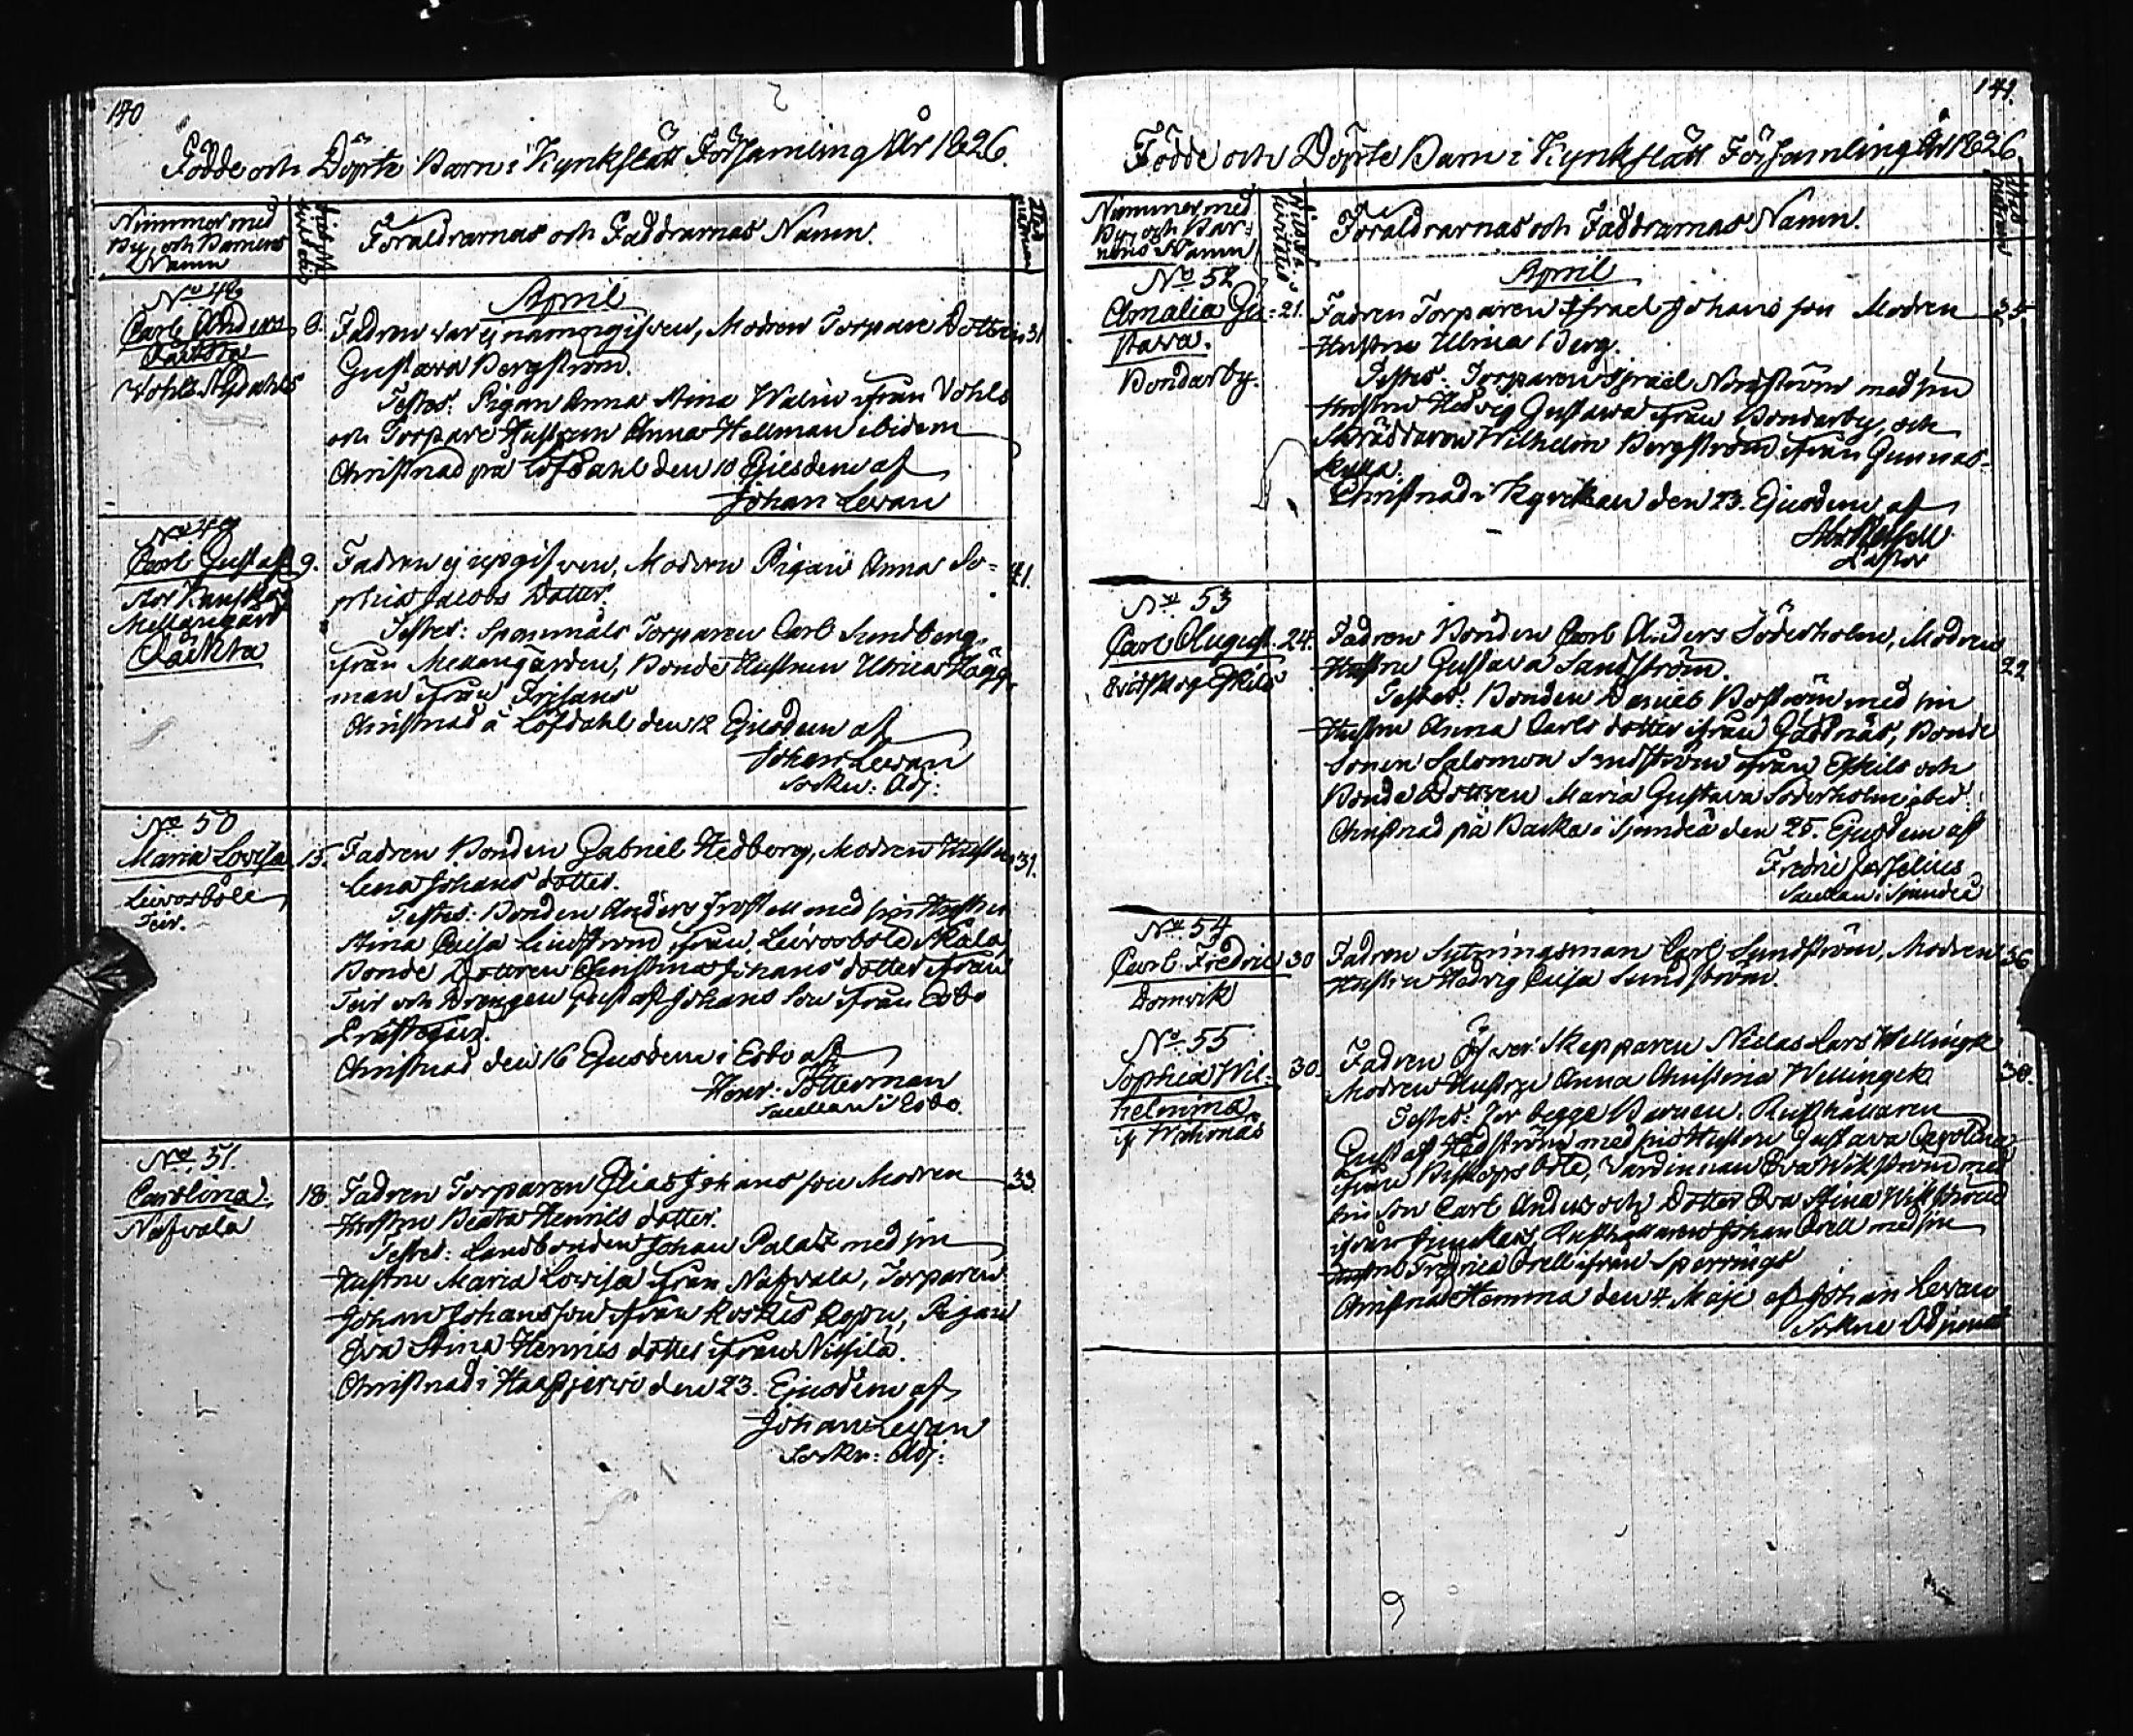 140
Födde och Döpte Barn i Kyrkslätt Församling År 1826.
Nummer med
By, och Barnens
Namn
Föräldrarnas och Faddrarnas Namn.
April
No 48
Carl Anders
Oäkta
Vohls
8.
Fadren var ej namngifven, Modren Torpare Dottern 31
Gustava Bergström.
Testes: Pigan Anna Stina Walin ifrån Vohls
och Torpare Hustrun Anna Hellman ibidem
Christnad på Löfdahl den 10 Ejusdem af
Johan Levan
No 49
Carl Gustaf
Stor Kanskog
Mellangård
Oäkta
9.
Fadren ej uppgifven, Modren Pigan Anna So= 41.
phia Jacobs Dotter.
Testes: Spannmåls Torparen Carl Sundberg
ifrån Mellangården, Bonde Hustrun Ulrica Hägg-
man ifrån Frisans
Christnad å Löfdahl den 12 Ejusdem af
Johan Levan
Sockn: Adj:
No 50
Maria Lovisa
Levosböle
Teir.
15.
Fadren Bonden Gabriel Hedberg, Modren Hustru 31.
Lena Johans dotter.
Testes: Bonden Anders Frostell med sin Hustru
Stina Caisa Lindström ifrån Levosböle Skala,
Bonde Dottren Christina Johans dotter ifrån
Teir och Drengen Gustaf Johans Son ifrån Esbo
Christnad den 16 Ejusdem i Esbo af
Henr: Tötterman
Sacellan i Esbo.
No 51.
Carolina
Nafvala
18.
Fadren Torparen Elias Johans son Modren 33.
Hustru Beata Henrics dotter.
Testes: Landbonden Johan Palatz med sin
Hustru Maria Lovisa ifrån Nafvala, Torparen
Johan Johansson ifrån Koskis, Pigan
Eva Stina Henrics dotter ifrån Nissilä.
Christnad i Haapjerwi den 23. Ejusdem af
Johan Levan
Sockn: Adj:
141.
Födde och Döpte Barn i Kyrkslätt Församling År 1826
Nummer, med
By, och Bar=
nens Namn
Föräldrarnas och Faddrarnas Namn.
April
No 52
Amalia Gu=
stava.
Bondarby.
21.
Fadren Torparen Israel Johans son Modren 25.
Hustru Ulrica Berg.
Testes: Torparen Israel Nordström med sin
Hustru Hedvig Gustava ifrån Bondarby, och
Skräddaren Wilhelm Bergström ifrån Gunnas-
kulla.
Christnad i Kyrckan den 23. Ejusdem af
Pastor
No 53
Carl August
Evitskog Eskils
24.
Fadren Bonden Carl Anders Söderholm, Modren
Hustru Gustava Sandström. 22
Testes: Bonden Daniel Boström med sin
Hustru Anna Carls dotter ifrån Gäddnäs, Bonde
Sonen Salomon Sandström ifrån Eskils och
Bonde Dottren Maria Gustava Söderholm ibid:
Christnad på Backa i Sjundeå den 25. Ejusdem af
Fredric Forselius
Sacellan i Sjundeå
No 54
Carl Fredric
Domvik
30
Fadren Sytningsman Carl Sundström, Modren 36
Hustru Hedvig Caisa Sundström.
No 55
Sophia Wil-
helmina
30.
Fadren Öfver Skepparen Niclas Lars Wellingk
Modren Hustru Anna Christina Wellingk 38.
Testes: för begge Barnen. Rusthållaren
Gustaf Hedström med sin Hustru Gustava Carolina
ifrån Biskops Böle, Värdinnan Eva Wikström med
sin Son Carl Anders och Dotter Eva Stina Wikström
ifrån, Rusthållaren Johan Orell med sin
Hustru Fredrica Orell ifrån Sperrings
Christnad Hemma den 4. Maji af Johan Levan
Sockne Adjunct